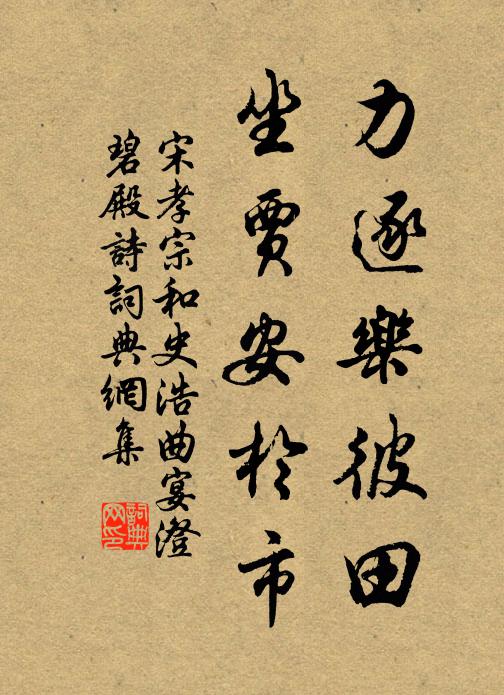 力逐樂彼田
坐賈安於市
宋孝宗和史浩曲宴澄
碧殿詩詞典網集
詞典
网印